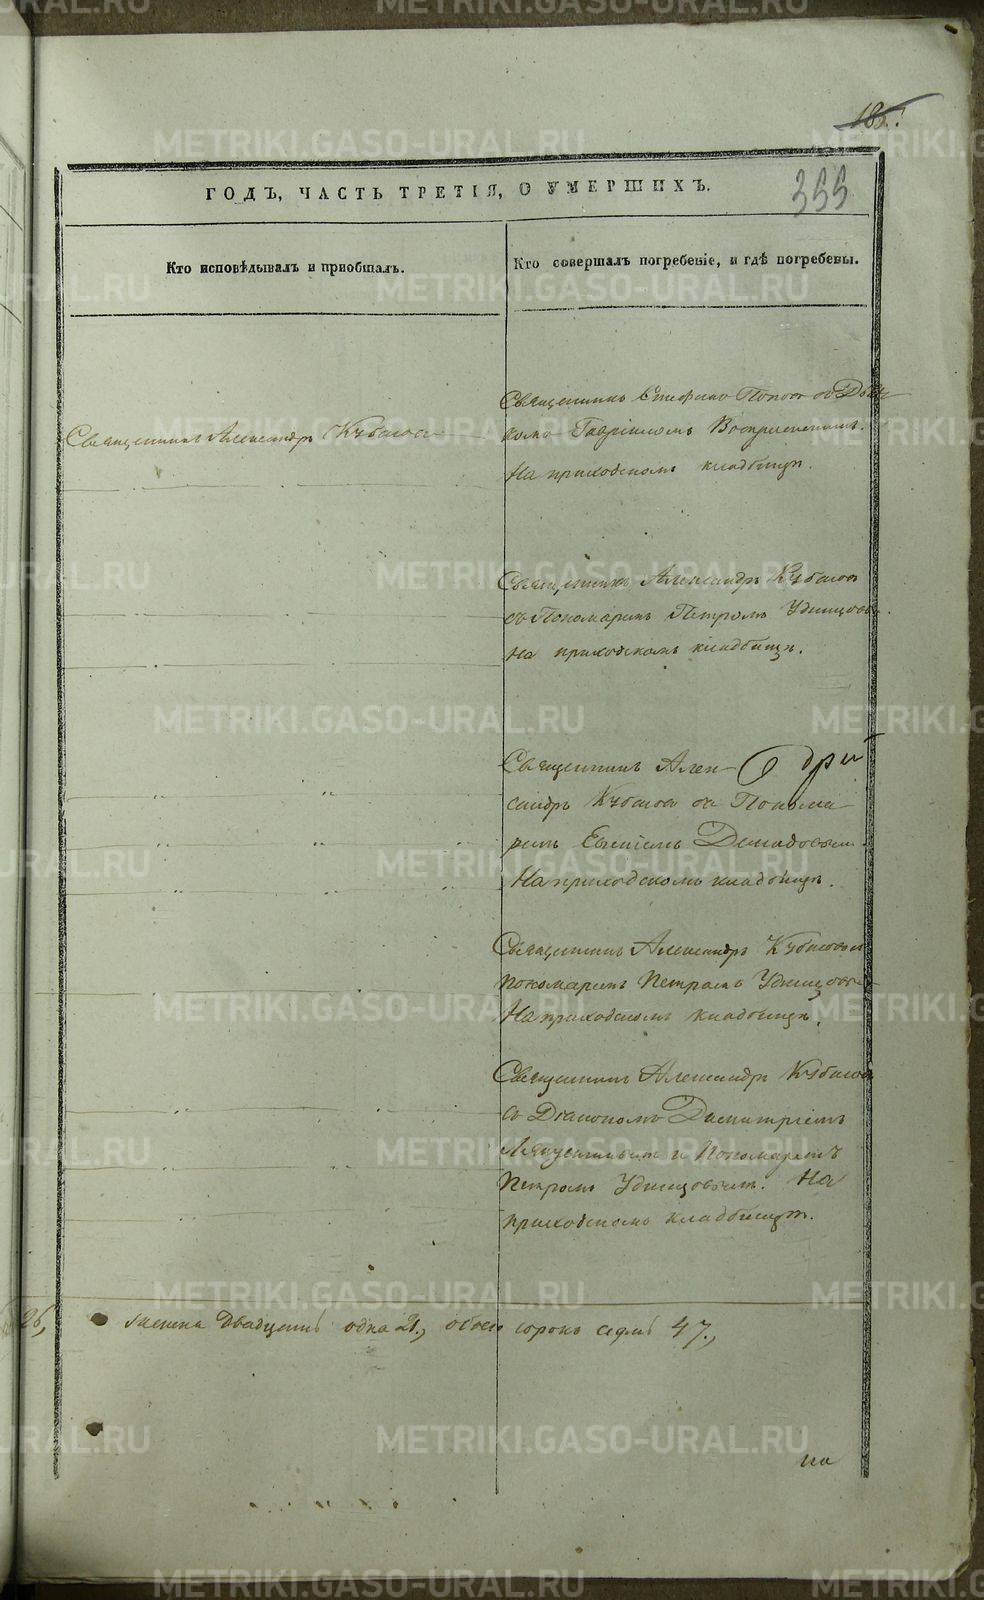 185.!
ГОДЪ, ЧАСТЬ ТРЕТІЯ, О УМЕРШИХЪ.
355
Кто исповѣдывалъ и пріобщалъ.
Кто совершалъ погребеніе, и гдѣ погребены.
Священникъ Александръ Кубасовъ
Священникъ Стефанъ Поповъ съ Дьяч
комъ Гавріиломъ Воскресенскимъ.
На приходскомъ кладбищѣ.
Священникъ Александръ Кубасовъ
съ Пономаремъ Петромъ Удинцовымъ.
На приходскомъ кладбищѣ.
Священникъ Алек
сандръ Кубасовъ съ Понома
ремъ
На приходскомъ кладбищѣ.
Священникъ Александръ Кубасовъ
пономаремъ Петромъ Удинцовымъ
На приходскомъ кладбищѣ.
Священникъ Александръ Кубасовъ
съ Діакономъ Димитріемъ
и Пономаремъ
Петромъ Удинцовымъ. На
приходскомъ кладбищѣ.
26, женска двадцать одна 21., обоего сорокъ седмь 47.,
на
METRIKI.GASO-URAL.RU